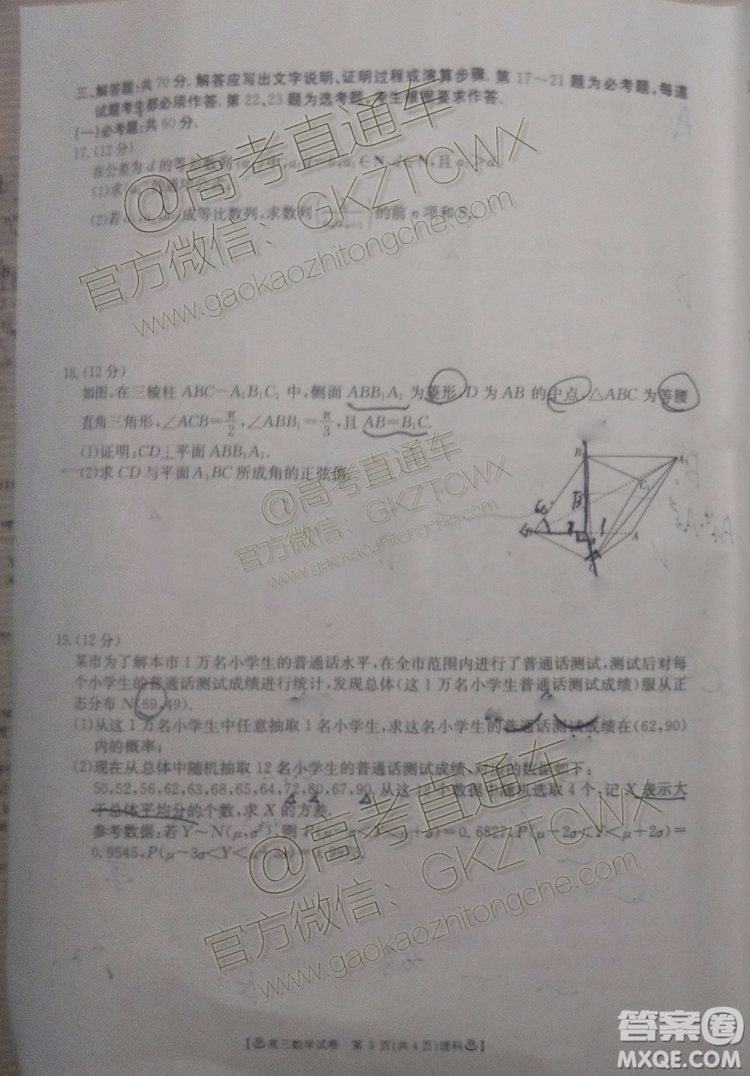 三、解答题:共70分. 解答应写出文字说明、证明过程或演算步骤. 第17～21题为必考题,每道
试题考生都必须作答. 第22、23题为选考题,考生根据要求作答.
(一)必考题:共60分.
17.(12分)
在公差为d的等差数列
(1)求
(2)若 成等比数列,求数列 的前n项和
18.(12分)
如图,在三棱柱ABC-A₁B₁C₁中,侧面ABB₁A₁为菱形,D为AB的中点,△ABC为等腰
直角三角形,∠ACB=π/2,∠ABB₁=π/3,且AB=B₁C.
(1)证明:CD⊥平面ABB₁A₁.
(2)求CD与平面A₁BC所成角的正弦值.
B₁
A₁
C₁
A
19.(12分)
某市为了解本市1万名小学生的普通话水平,在全市范围内进行了普通话测试,测试后对每
个小学生的普通话测试成绩进行统计,发现总体(这1万名小学生普通话测试成绩)服从正
态分布N(69,49).
(1)从这1万名小学生中任意抽取1名小学生,求这名小学生的普通话测试成绩在(62,90)
内的概率;
(2)现在从总体中随机抽取12名小学生的普通话测试成绩,对应的数据如下:
50,52,56,62,63,68,65,64,72,80,67,90.从这12个数据中随机选取4个,记X表示大
于总体平均分的个数,求X的方差.
参考数据:若Y~N(μ,σ²),则P(μ-σ<Y<μ+σ)=0.6827,P(μ-2σ<Y<μ+2σ)=
0.9545,P(μ-3σ<Y<
@高考直通车
官方微信: GKZTCWX
www.gaokaozhitongche.com
@高考直通车
官方微信: GKZTCWX
www.gaokaozhitongche.com
@高考直通车
官方微信: GKZTCWX
www.gaokaozhitongche.com
高三数学试卷 第3页(共4页)理科
答案圈
MXQE.COM